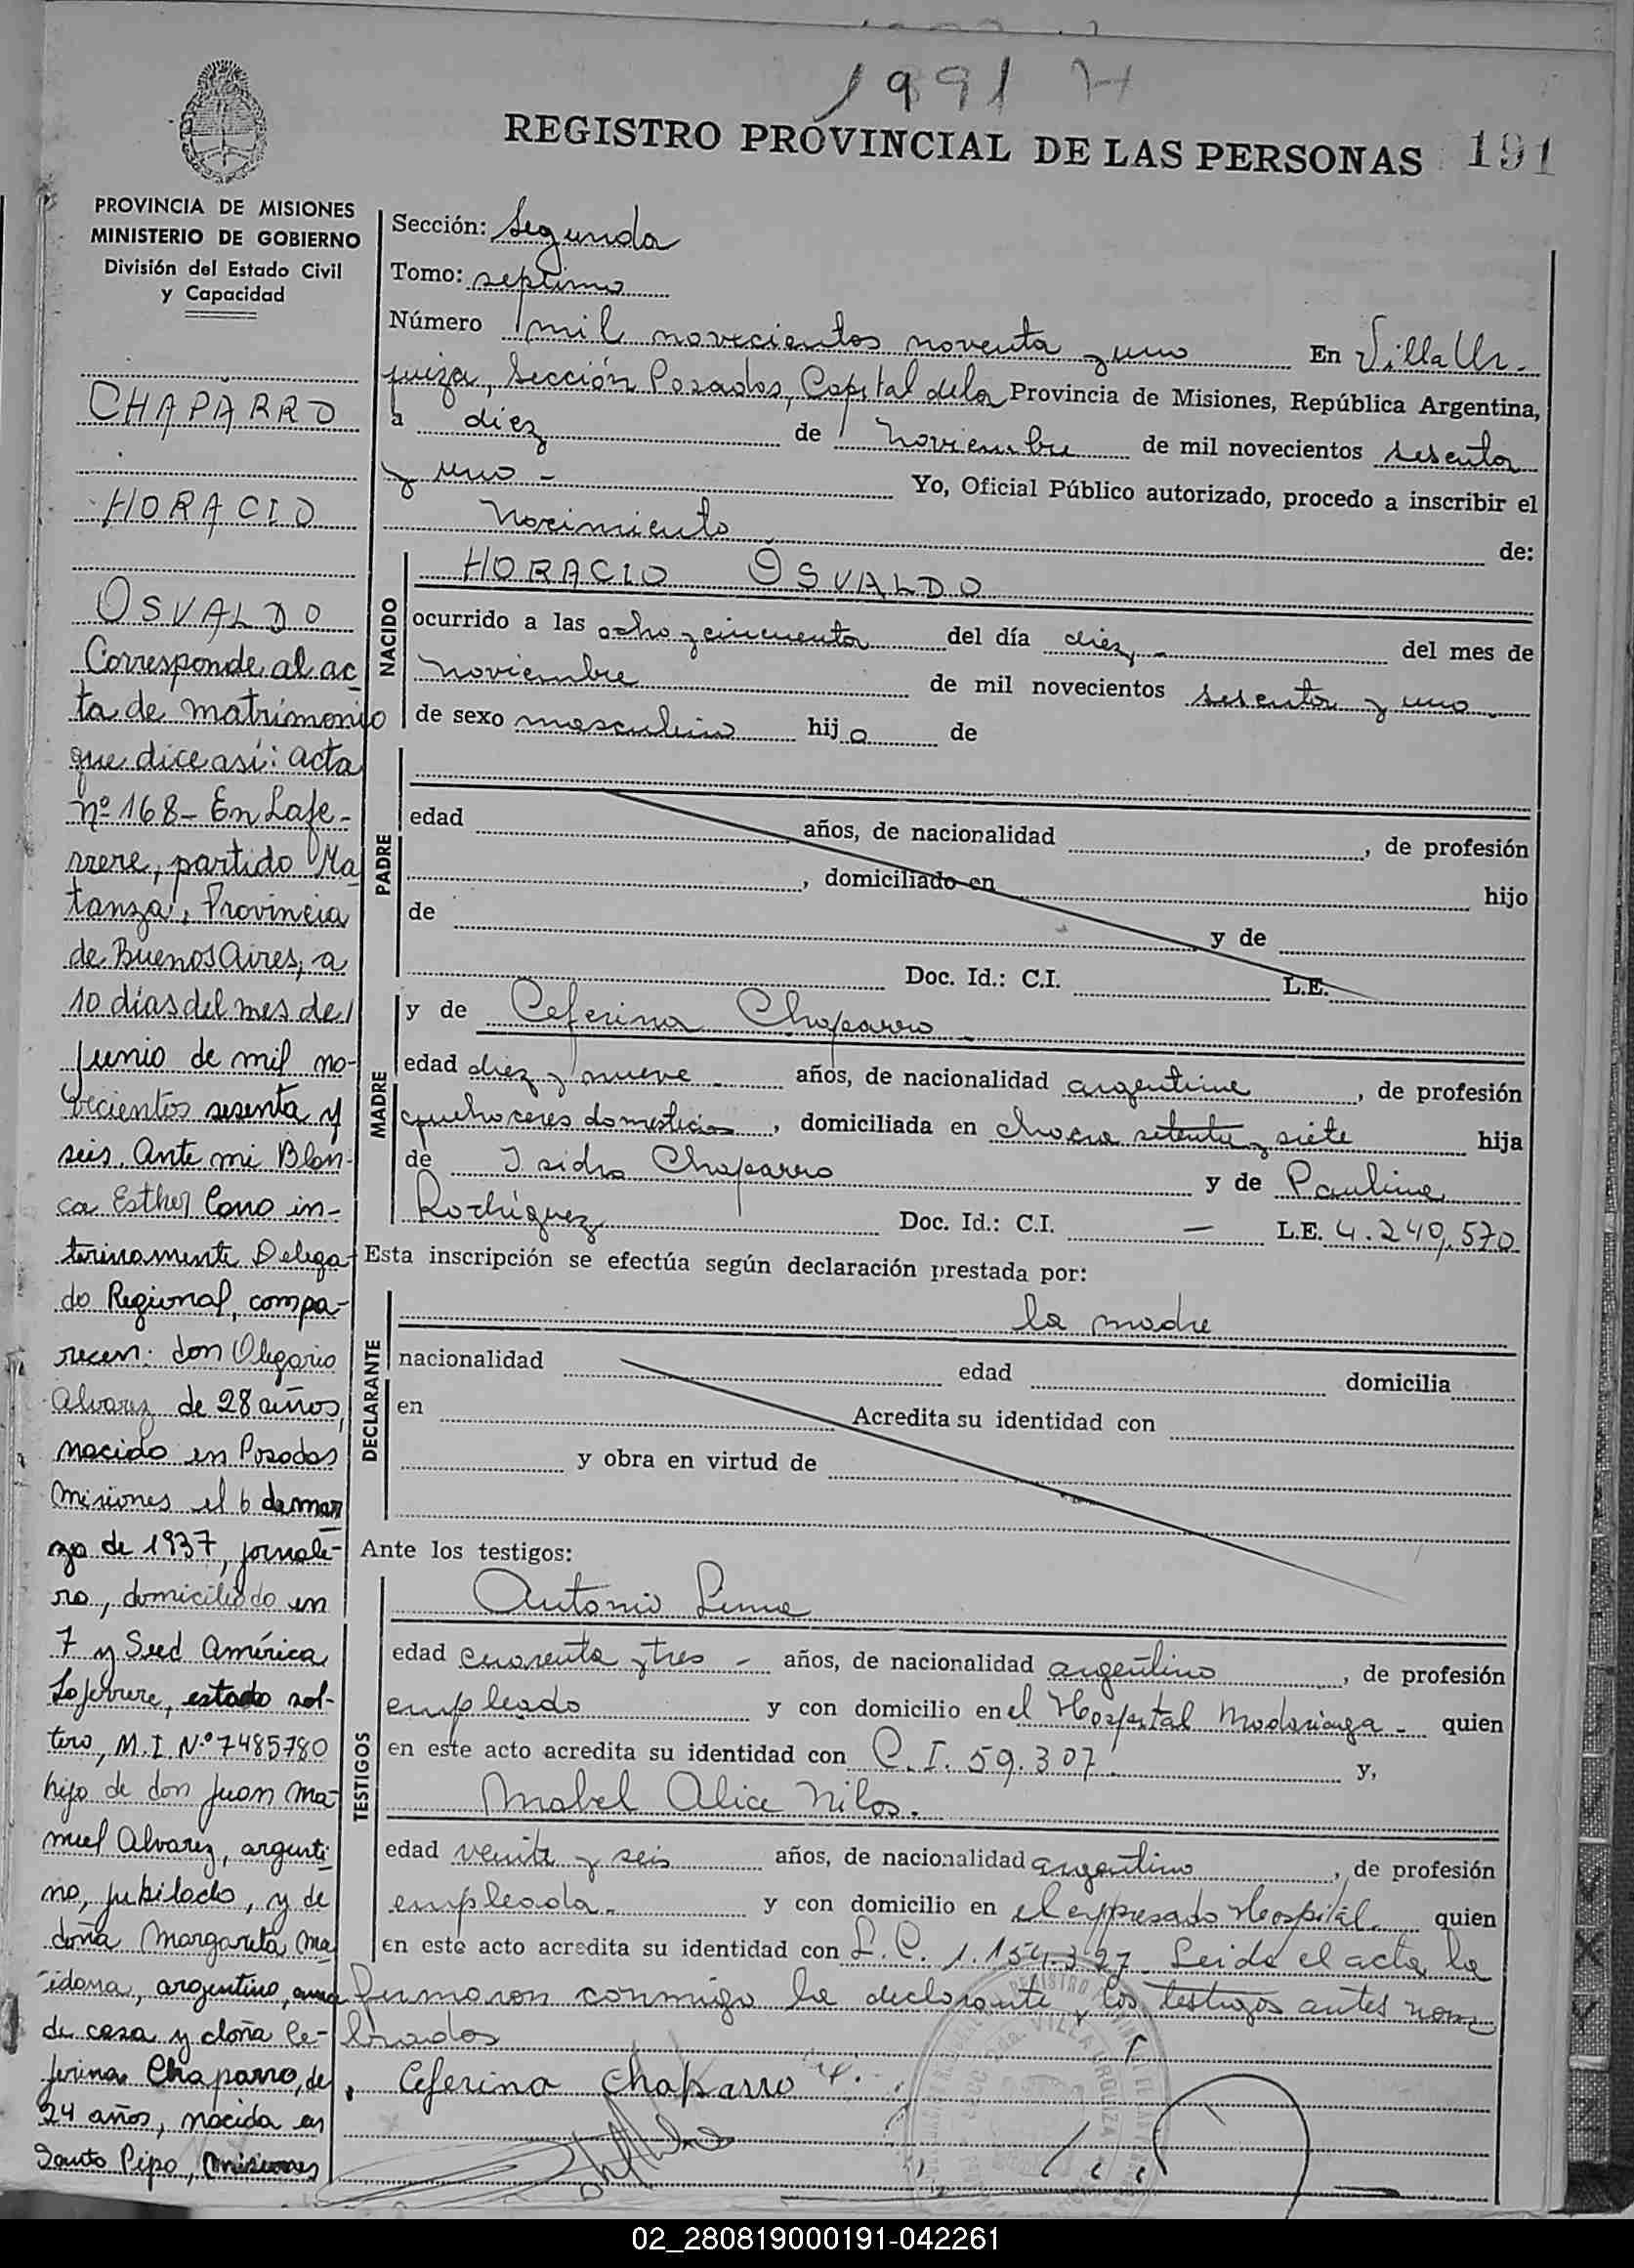 1991 H
REGISTRO PROVINCIAL DE LAS PERSONAS 191
PROVINCIA DE MISIONES
MINISTERIO DE GOBIERNO
División del Estado Civil
y Capacidad
CHAPARRO
HORACIO
OSVALDO
Corresponde al ac
ta de matrimonio
que dice así: acta
nº 168- En Lafe-
rrere, partido Ma
tanza, Provincia
de Buenos Aires, a
10 días del mes de
Junio de mil no-
vecientos sesenta y
seis. Ante mi Blan-
ca Esther Cano in-
terinamente Delega
do Regional, compa-
recen: don Olegario
Alvarez de 28 años,
nacido en Posadas
Misiones el 6 de mar
zo de 1937, jornale-
ro, domiciliado en
7 y Sud América
Laferrere, estado sol-
tero, M.I. Nº 7485780
hijo de don Juan Ma-
nuel Alvarez, argenti-
no, jubilado, y de
doña Margarita Ma
idana, argentino, ama
de casa y doña Ce-
ferina Chaparro, de
24 años, nacida en
Santo Pipo, Misiones
Sección: Segunda
Tomo: septimo
Número mil novecientos noventa y uno En Villa Ur-
quiza, Sección Posadas, Capital de la Provincia de Misiones, República Argentina,
a diez de noviembre de mil novecientos sesenta
y uno - Yo, Oficial Público autorizado, procedo a inscribir el
nacimiento de:
NACIDO
HORACIO OSVALDO
ocurrido a las ocho y cincuenta del día diez, - del mes de
noviembre de mil novecientos sesenta y uno -
de sexo masculino hijo de
PADRE
edad años, de nacionalidad , de profesión
, domiciliado en hijo
de y de
Doc. Id.: C.I. L.E.
MADRE
y de Ceferina Chaparro -
edad diez y nueve - años, de nacionalidad argentina , de profesión
quehaceres domesticos , domiciliada en chacra setenta y siete hija
de Isidro Chaparro y de Paulina
Rodríguez Doc. Id.: C.I. — L.E. 4.240.570
Esta inscripción se efectúa según declaración prestada por:
DECLARANTE
la madre
nacionalidad edad domicilia
en Acredita su identidad con
y obra en virtud de
Ante los testigos:
TESTIGOS
Antonio Lima
edad cuarenta y tres - años, de nacionalidad argentino , de profesión
empleado y con domicilio en el Hospital Madariaga - quien
en este acto acredita su identidad con C.I. 59.307. y,
Mabel Alice Nilos.
edad veinte y seis años, de nacionalidad argentino , de profesión
empleada. y con domicilio en el expresado Hospital. quien
en este acto acredita su identidad con L.C. 1.154.327. Leida el acta la
firmaron conmigo la declarante y los testigos antes nom
brados
Ceferina Chaparro
02_280819000191-042261